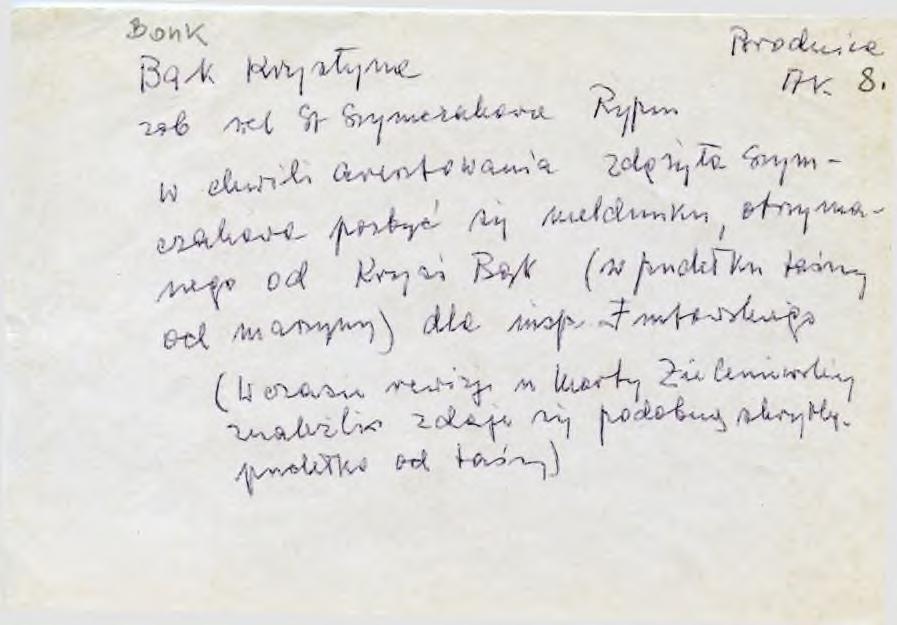 Bonk
Bąk Krystyna
Brodnica
AK. 8.
zob rel St Szymczakowa Rypin
w chwili aresztowania zdążyła Szym-
czakowa pozbyć się meldunku, otrzyma-
nego od Krysi Bąk (w pudełku taśmy
od maszyny) dla insp.
(W czasie rewizji u Marty Zieleniewskiej
znaleźli zdaje się podobną skrytkę.
pudełko od taśmy)